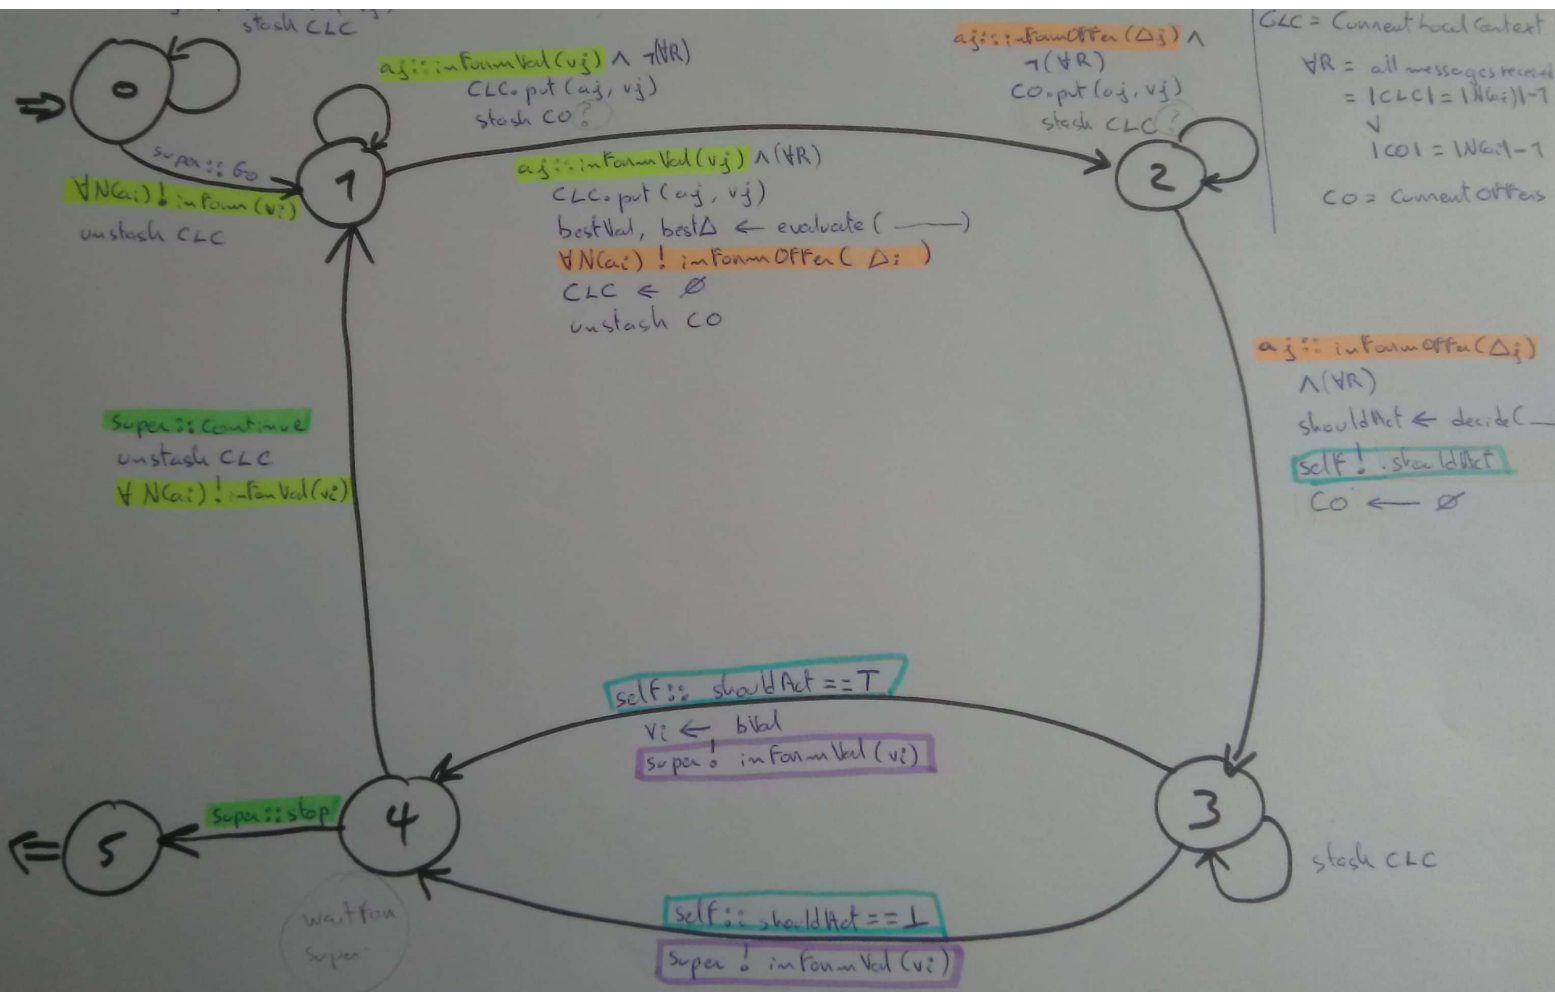 stash CLC
0
super::Go
∀N(ai)! inform(vi)
unstash CLC
aj::informVal(vj) ∧ ¬(∀R)
CLC.put(aj, vj)
stash CO ?
1
aj::informVal(vj) ∧ (∀R)
CLC.put(aj, vj)
bestVal, best∆ ← evaluate(——)
∀N(ai)! informOffer(∆i)
CLC ← ∅
unstash CO
aj::informOffer(∆j) ∧
¬(∀R)
CO.put(aj, vj)
stash CLC ?
2
CLC = Current Local Context
∀R = all messages received
= |CLC| = |N(ai)|-1
∨
|CO| = |N(ai)|-1
CO = Current Offers
aj::informOffer(∆j)
∧(∀R)
shouldAct ← decide(—
self! shouldAct
CO ← ∅
super::Continue
unstash CLC
∀N(ai)! informVal(vi)
self:: shouldAct == T
vi ← bVal
super! informVal(vi)
3
stash CLC
4
super::stop
5
wait for
super
self:: shouldAct == ⊥
super! informVal(vi)